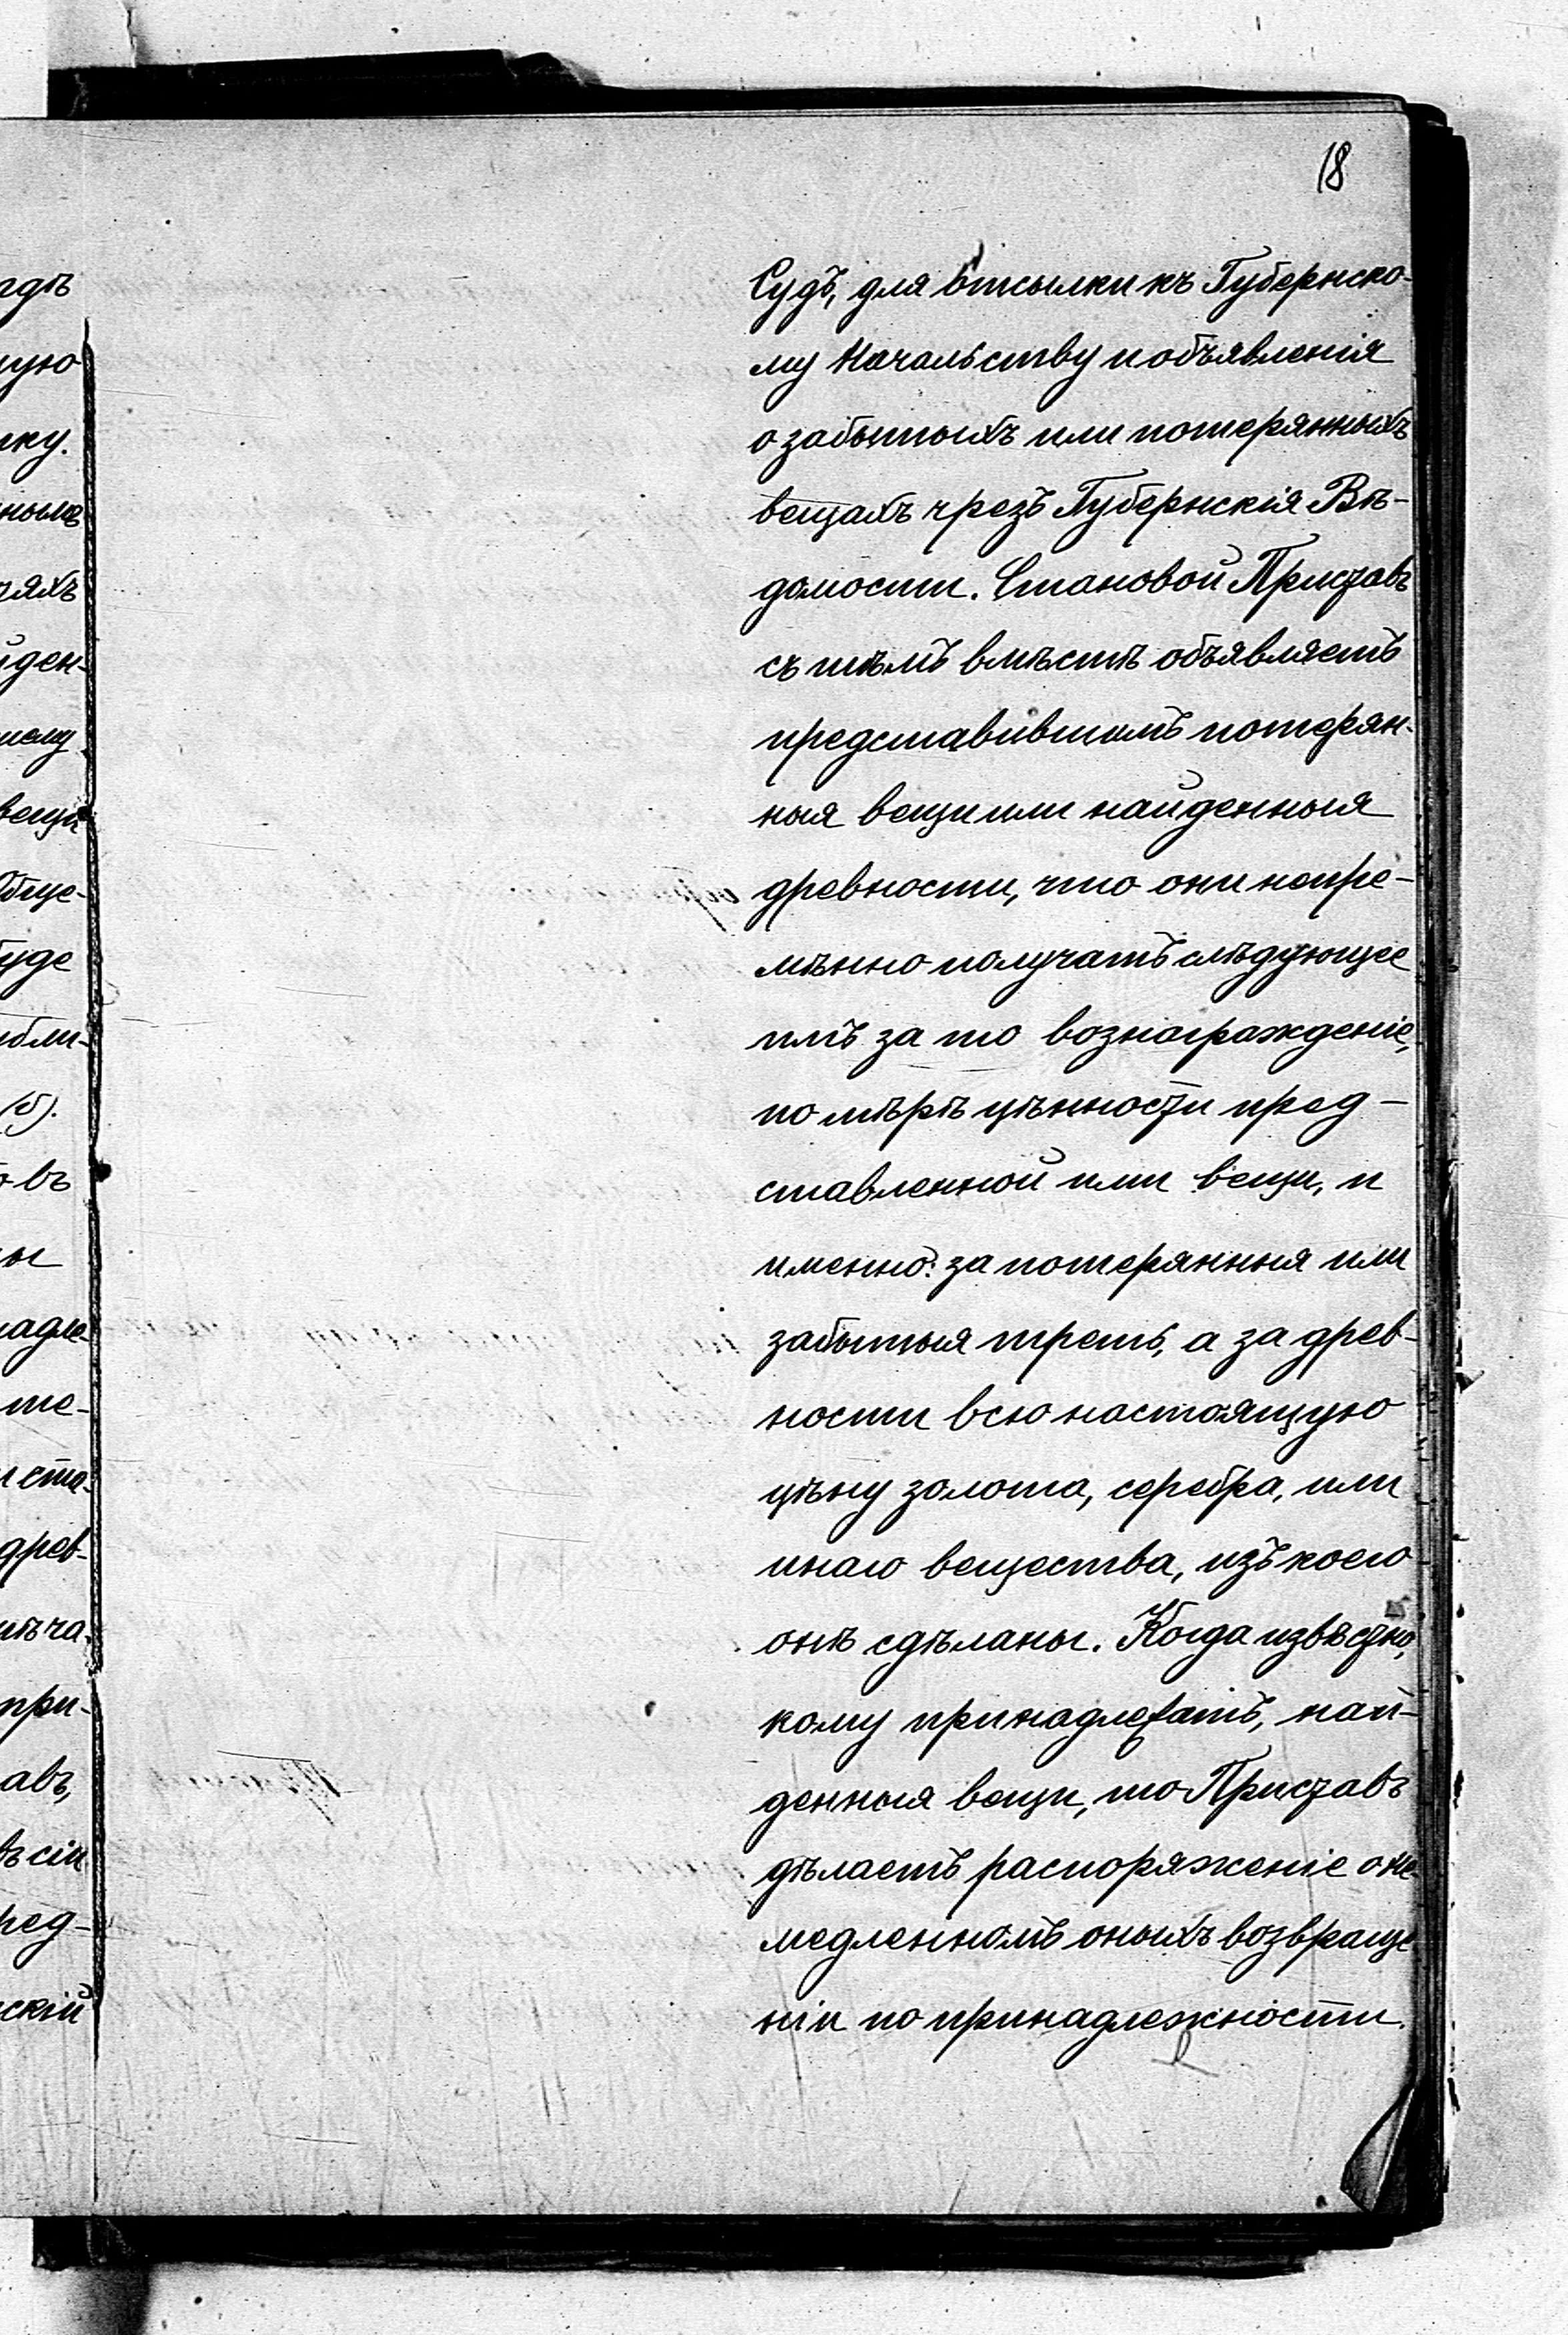 18
Судъ, для отсылки къ Губернско-
му Начальству и объявленія
о забытыхъ или потерянныхъ
вещахъ чрезъ Губернскія Вѣ-
домости. Становой Приставъ
съ тѣмъ вмѣстѣ объявляетъ
представившимъ потерян-
ныя вещи или найденныя
древности, что они непре-
мѣнно получатъ слѣдующее
имъ за то вознагражденіе,
по мѣрѣ цѣнности пред-
ставленной ими вещи, и
именно: за потерянныя или
забытыя треть, а за древ-
ности всю настоящую
цѣну золота, серебра, или
инаго вещества, изъ коего
онѣ сдѣланы. Когда извѣстно,
кому принадлежатъ, най-
денныя вещи, то Приставъ
дѣлаетъ распоряженіе о не-
медленномъ оныхъ возвраще
ніи по принадлежности.